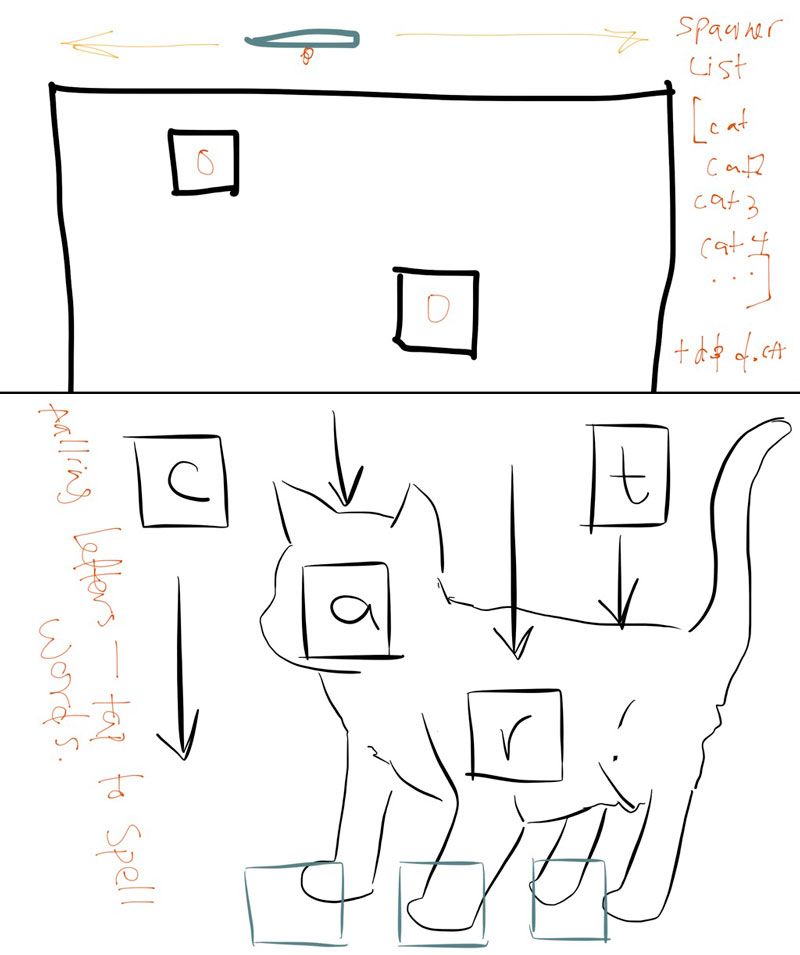 spawner
List
[cat
cat2
cat3
cat4
...]
o
o
c
t
a
r
falling letters — tap to spell
words.